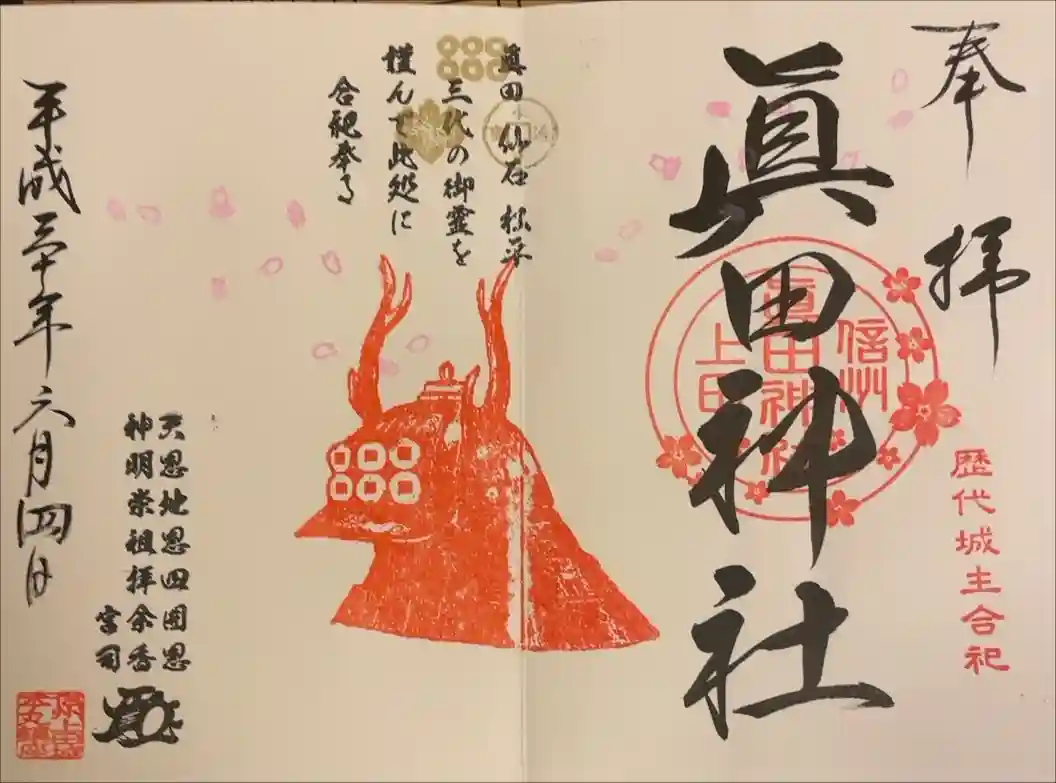 奉拝
眞田神社
信州
眞田神社
上田
歴代城主合祀
眞田 仙石 松平
三代の御霊を
謹んで此処に
合祀奉る
天恩地恩四圀恩
神明崇祖拝余香
宮司
平成三十年六月四日